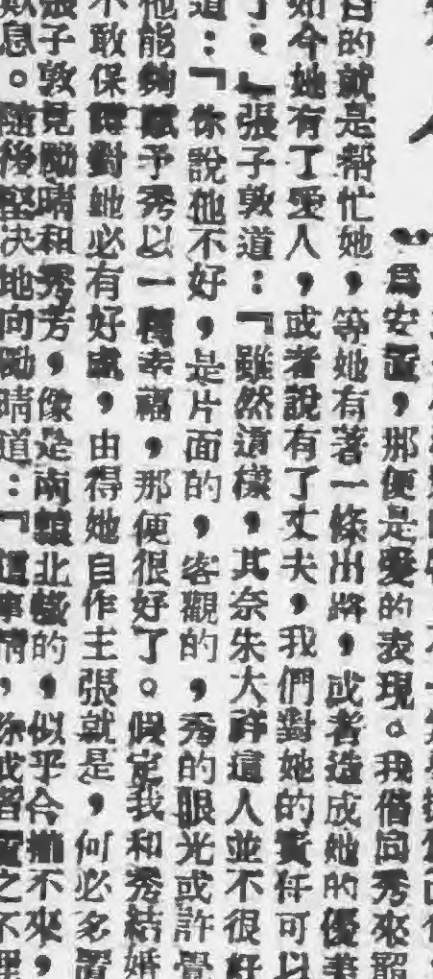 為安置，那便是愛的表現。我偕同秀來
的就是幫忙她，等她有著一條出路，或者造成她的優
如今她有了愛人，或者說有了丈夫，我們對她的責任可以
了。」張子敦道：「雖然這樣，其奈朱大祥這人並不很好
道：「你說他不好，是片面的，客觀的，秀的眼光或許覺
他能夠賦予秀以一種幸福，那便很好了。假定我和秀結婚
不敢保障對她必有好處，由得她自作主張就是，何必多置
張子敦見勵晴和秀芳，像是南轅北轍的，似乎合攏不來，
歎息。隨後堅決地向勵晴道：「這事情，你或